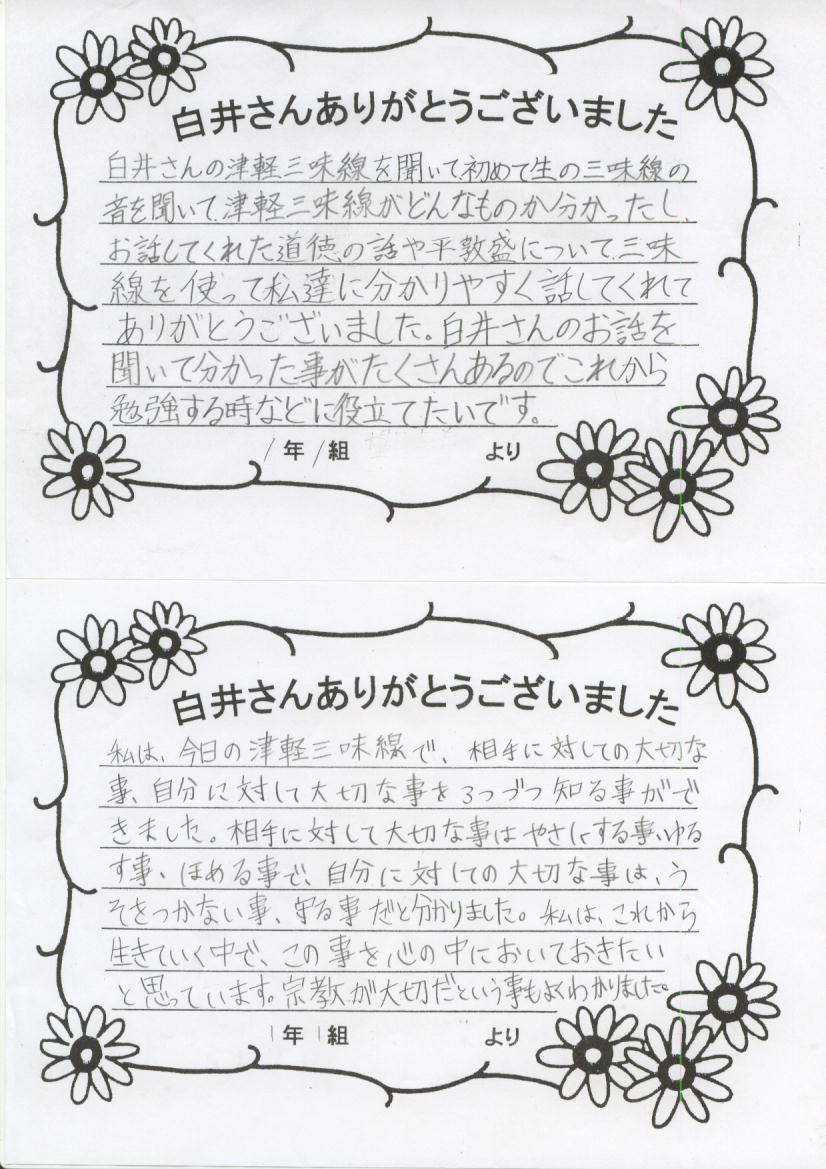 白井さんありがとうございました
白井さんの津軽三味線を聞いて初めて生の三味線の
音を聞いて、津軽三味線がどんなものか分かったし、
お話してくれた道徳の話や平敦盛について、三味
線を使って私達に分かりやすく話してくれて
ありがとうございました。白井さんのお話を
聞いて分かった事がたくさんあるのでこれから
勉強する時などに役立てたいです。
1年1組 より
白井さんありがとうございました
私は、今日の津軽三味線で、相手に対しての大切な
事、自分に対して大切な事を3つづつ知る事がで
きました。相手に対して大切な事はやさしくする事、ゆる
す事、ほめる事で、自分に対しての大切な事は、う
そをつかない事、守る事だと分かりました。私は、これから
生きていく中で、この事を心の中においておきたい
と思っています。宗教が大切だという事もよくわかりました。
1年1組 より